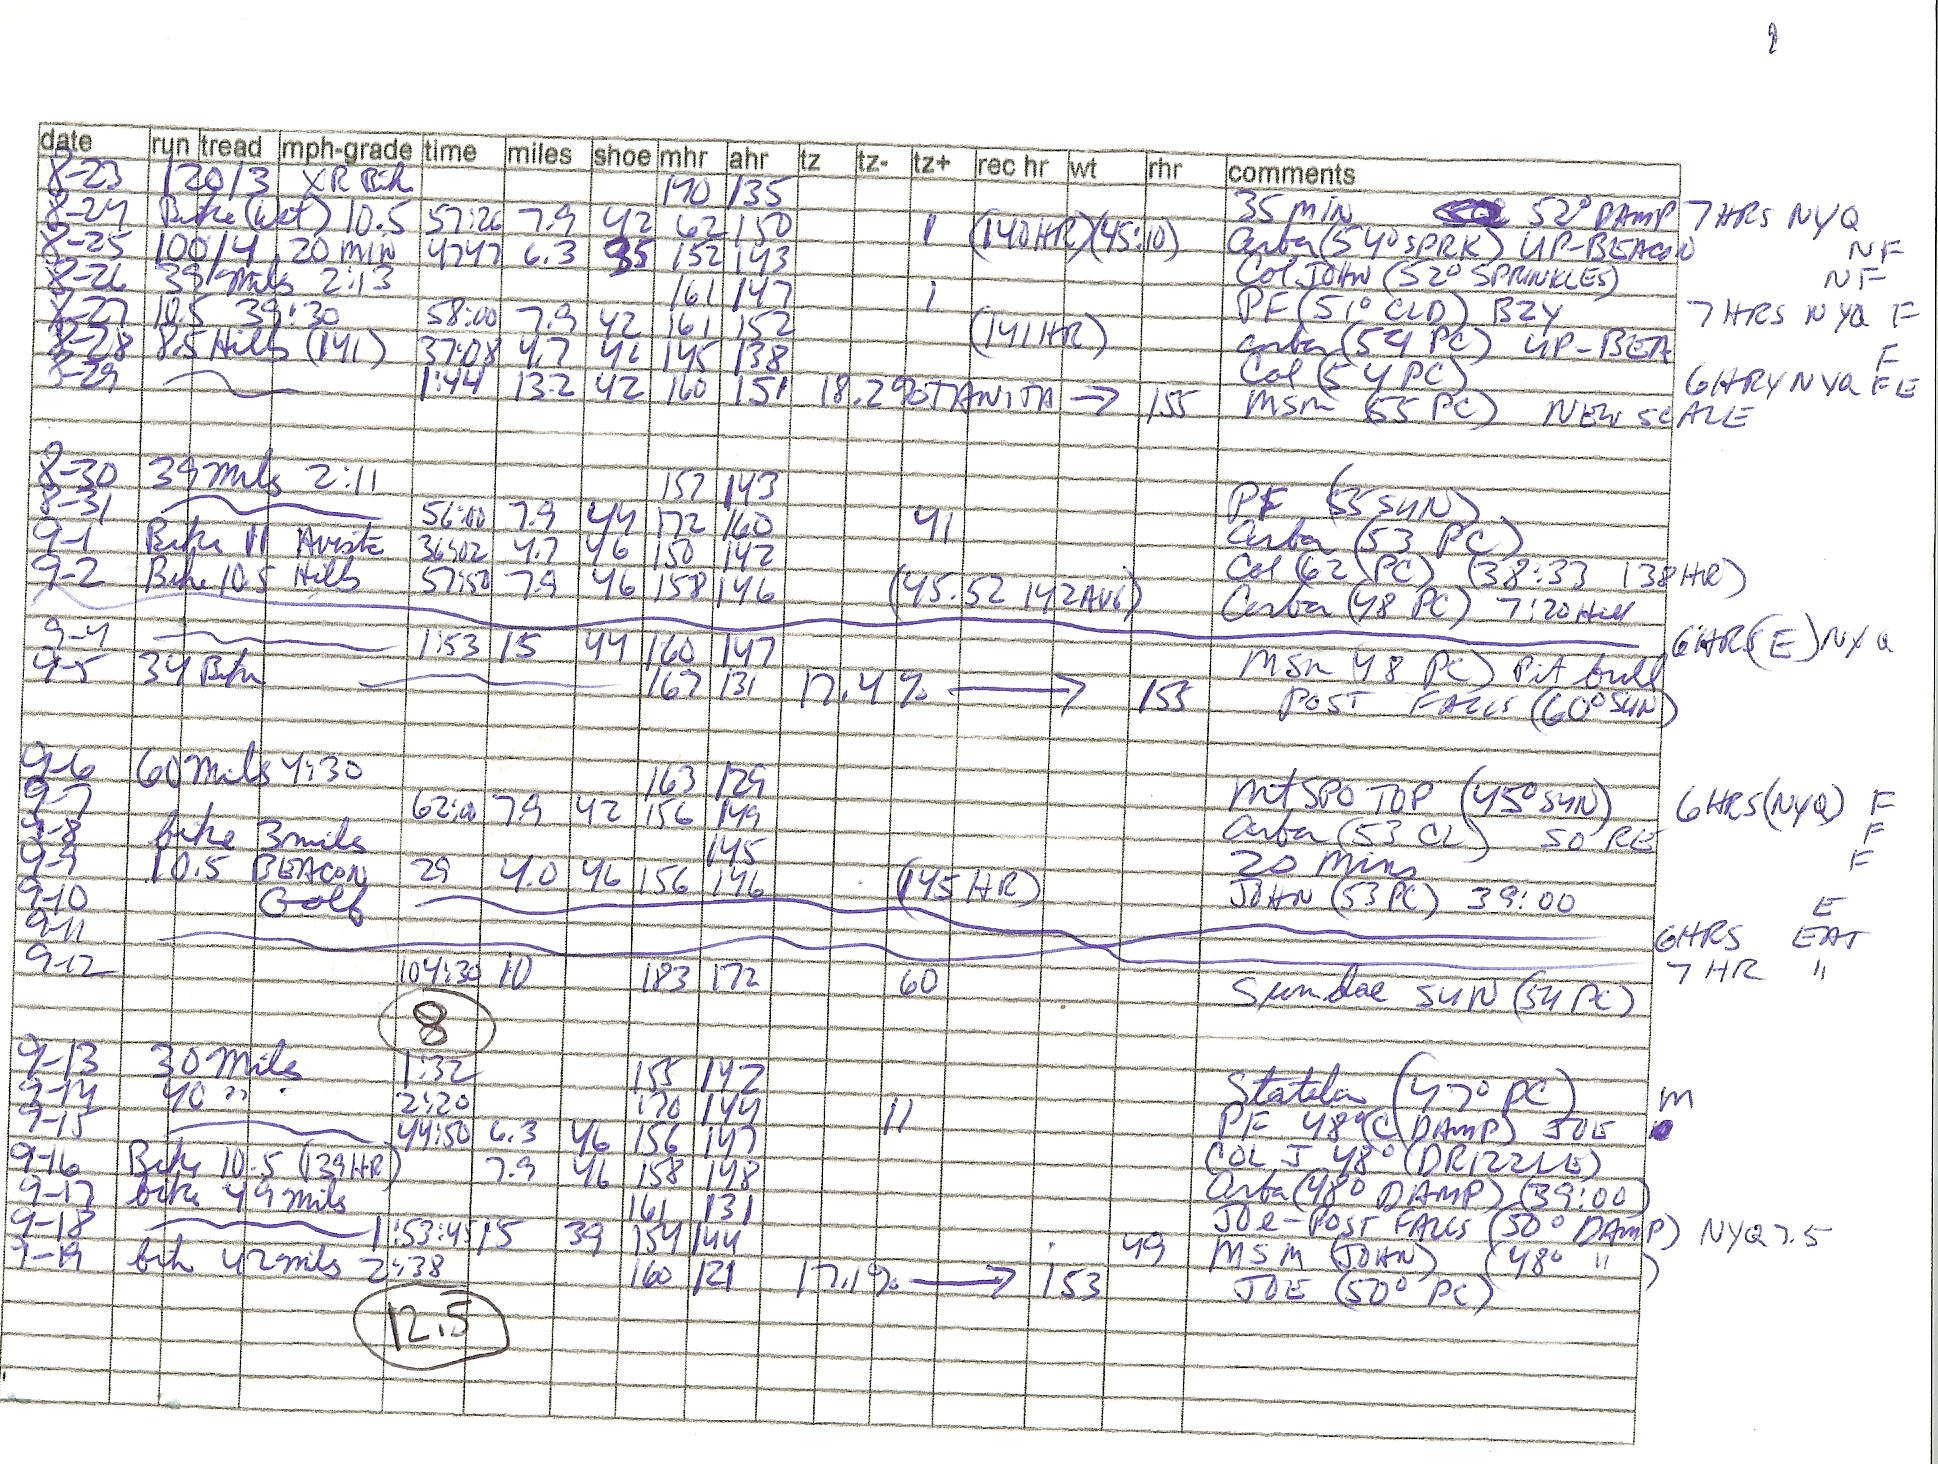 date run tread mph-grade time miles shoe mhr ahr tz tz- tz+ rec hr wt rhr comments
8-23 120/3 XR Bik 170 135 35 MIN 52° DAMP 7 HRS NYQ
8-24 Bike (wet) 10.5 57:26 7.9 42 62 150 1 (140HR)(45:10) (54° SPRK) UP-BEACON NF
8-25 100/4 20 min 4747 6.3 35 152 143 Col JOHN (52° SPRINKLES) NF
8-26 39 Mils 2:13 161 147 1 PF (51° CLD) BZY 7 HRS NYQ F
8-27 10.5 39:30 58:00 7.9 42 161 152 (141HR) (54 PC) UP-BETA F
8-28 8.5 Hills (141) 37:08 4.7 46 145 138 Col (54 PC) 6 HRY NYQ FE
8-29 1:44 13.2 42 160 151 18.2% TANITA → 155 MSM (55 PC) NEW SCALE
8-30 39 Mils 2:11 157 143 PF (55 SUN)
8-31 56:00 7.9 44 172 160 41 (53 PC)
9-1 Bike 11 36:02 4.7 46 150 142 Col (62 PC) (38:33 138HR)
9-2 Bik 10.5 Hills 57:50 7.9 46 158 146 (45.52 142 AVG) (48 PC) 7:20 Hill
9-4 1:53 15 44 160 147 MSM (48 PC) Pit bull 6 HRS (E) NYQ
9-5 34 Bik 167 131 17.4% → 155 POST FALLS (60° SUN)
9-6 60 Mils 4:30 163 129 Mt SPO TOP (45° SUN) 6 HRS (NYQ) F
9-7 62:00 7.9 42 156 149 (53 CL) SO RE F
9-8 bike 3 mils 145 20 Mins F
9-9 10.5 BEACON 29 4.0 46 156 146 (145 HR) JOHN (53 PC) 39:00
9-10 Golf E
9-11 6 HRS EAT
9-12 104:30 10 183 172 60 Sundae SUN (54 PC) 7 HR "
8
9-13 30 Mils 1:32 155 142 (47° PC) M
9-14 40 " 2:20 170 144 11 PF 48° (DAMP) JOE
9-15 44:50 6.3 46 156 147 COL J 48° (DRIZZLE)
9-16 Bik 10.5 (139HR) 7.9 46 158 148 (48° DAMP) (39:00)
9-17 bike 49 Mils 161 131 JOE-POST FALLS (50° DAMP) NYQ 7.5
9-18 1:53:45 15 39 154 144 49 MSM (JOHN) (48° ")
9-19 bik 42 mils 2:38 160 121 17.1% → 153 JOE (50° PC)
12.5